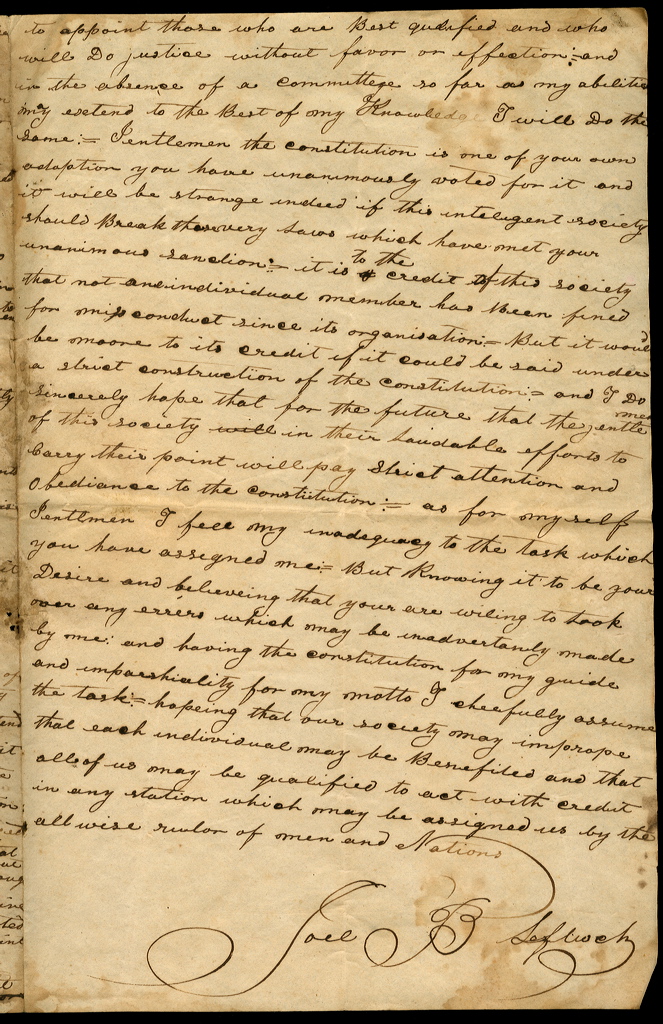 to appoint those who are Best qudified and who
will Do justice without favor or effection:= and
in the absence of a committege so far as my abilitie
my extend to the Best of my Knowledge I will Do the
same:= Jentlemen the constitution is one of your own
adoption you have unanimously voted for it and
it will be strange indeed if this inteligent society
should Break those very laws which have met your
unanimous sanction:= it is to the credit of this society
that not an individual member has Been fined
for miss conduct since its organisation:= But it would
be moore to its credit if it could be said under
a strict construction of the constitution:= and I Do
sincerely hope that for the future that the gentlemen
of this society will in their laudable efforts to
Carry their point will pay strict attention and
Obediance to the constitution:= as for my self
Jentlmen I feel my inadequacy to the task which
you have assigned me:= But Knowing it to be your
Desire and believeing that your are wiling to Look
over any errers which may be inadvertantly made
by me: and having the constitution for my guide
and imparshiality for my motto I cheefully assume
the task:= hopeing that our society may improve
that each individual may be Benefited and that
all of us may be qualified to act with credit
in any station which may be assigned us by the
all wise rulor of men and Nations
Joel B Leftwich